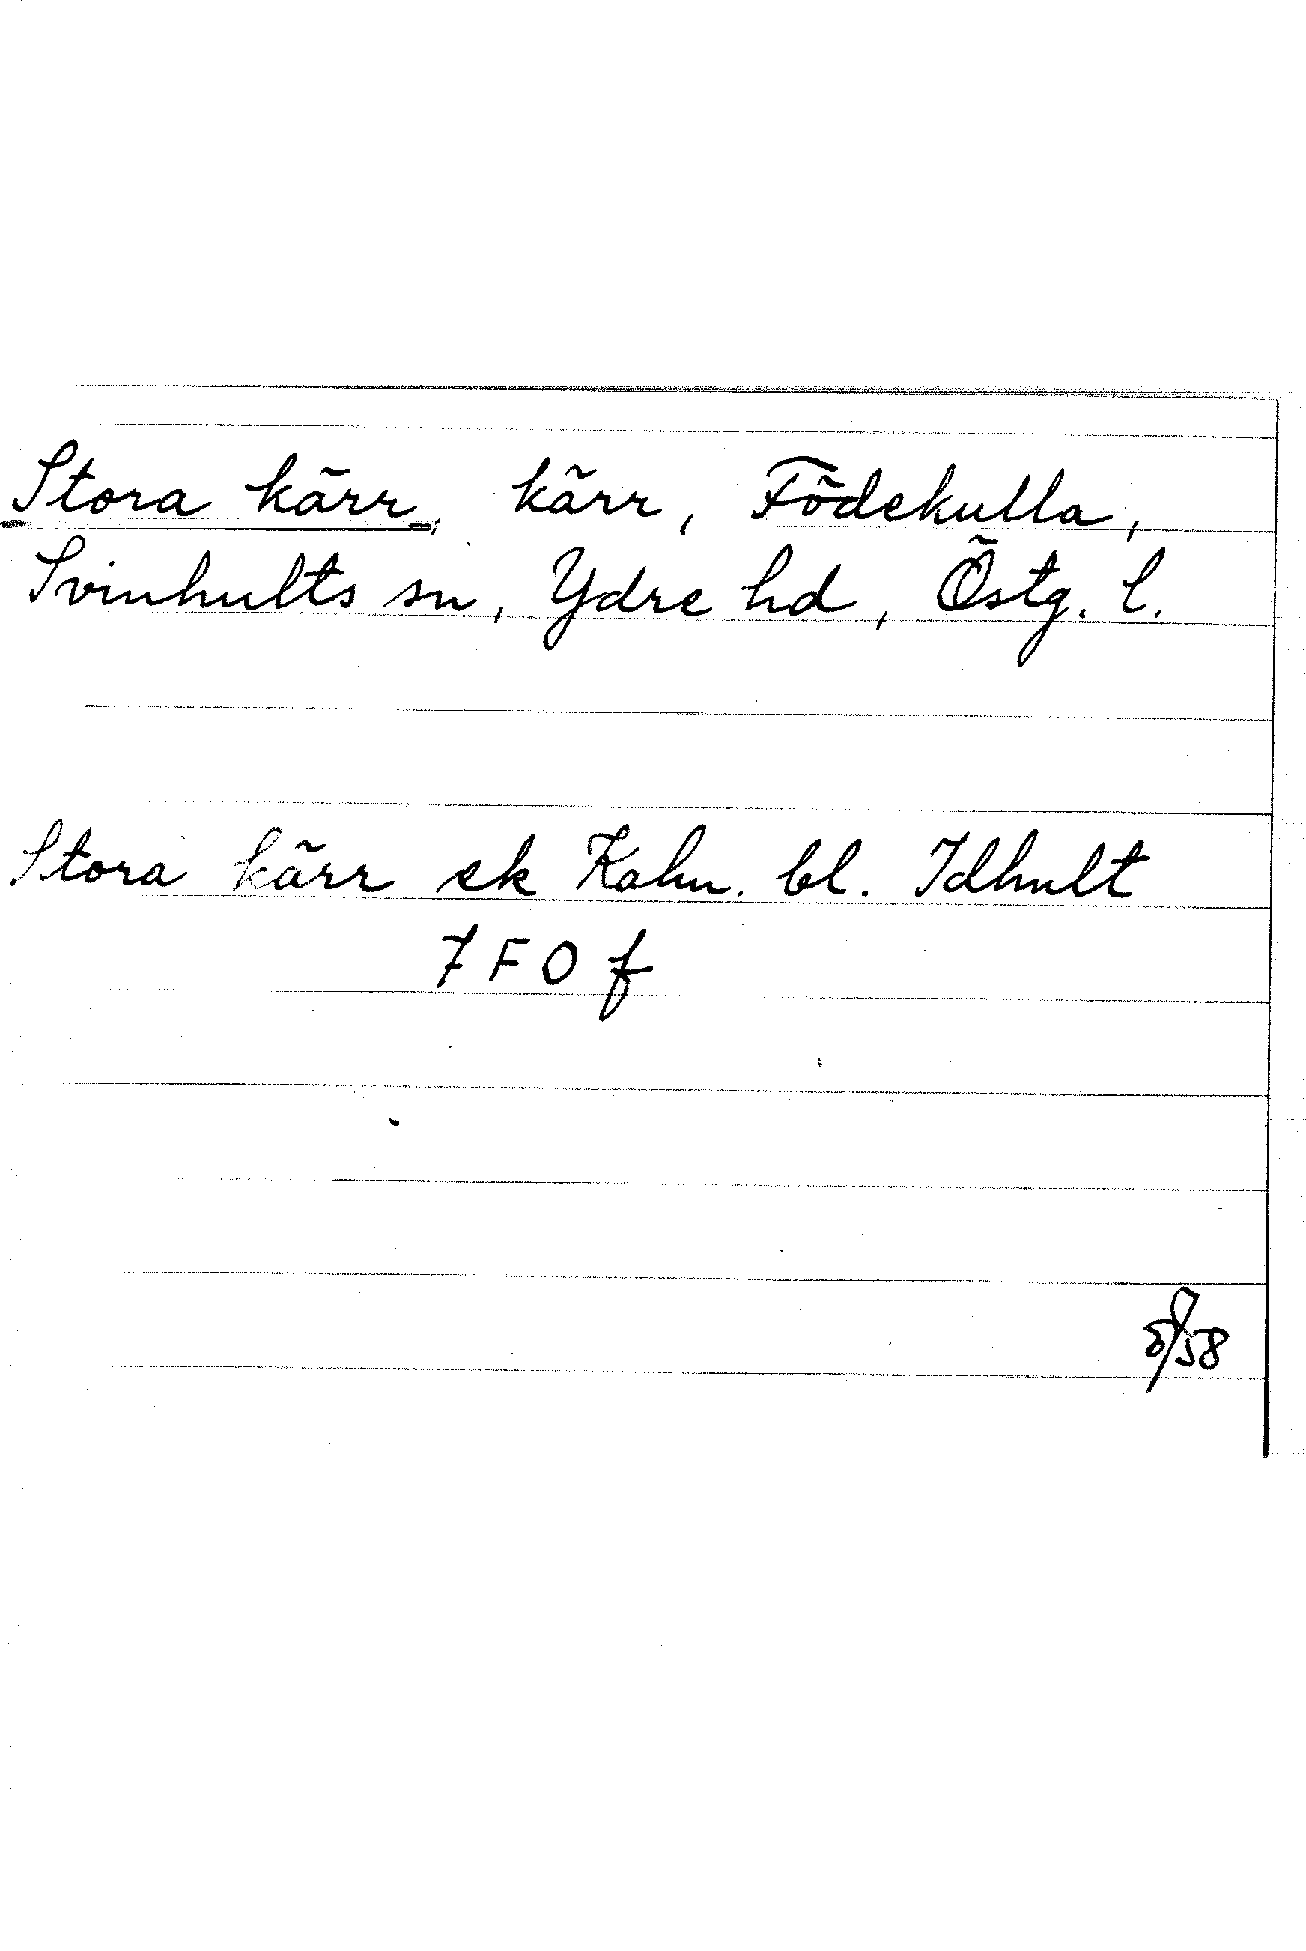 Stora kärr, kärr, Födekulla,
Svinhults sn, Ydre hd, Östg. l.
Stora kärr ek Kahn. bl. Idhult
7 F O f